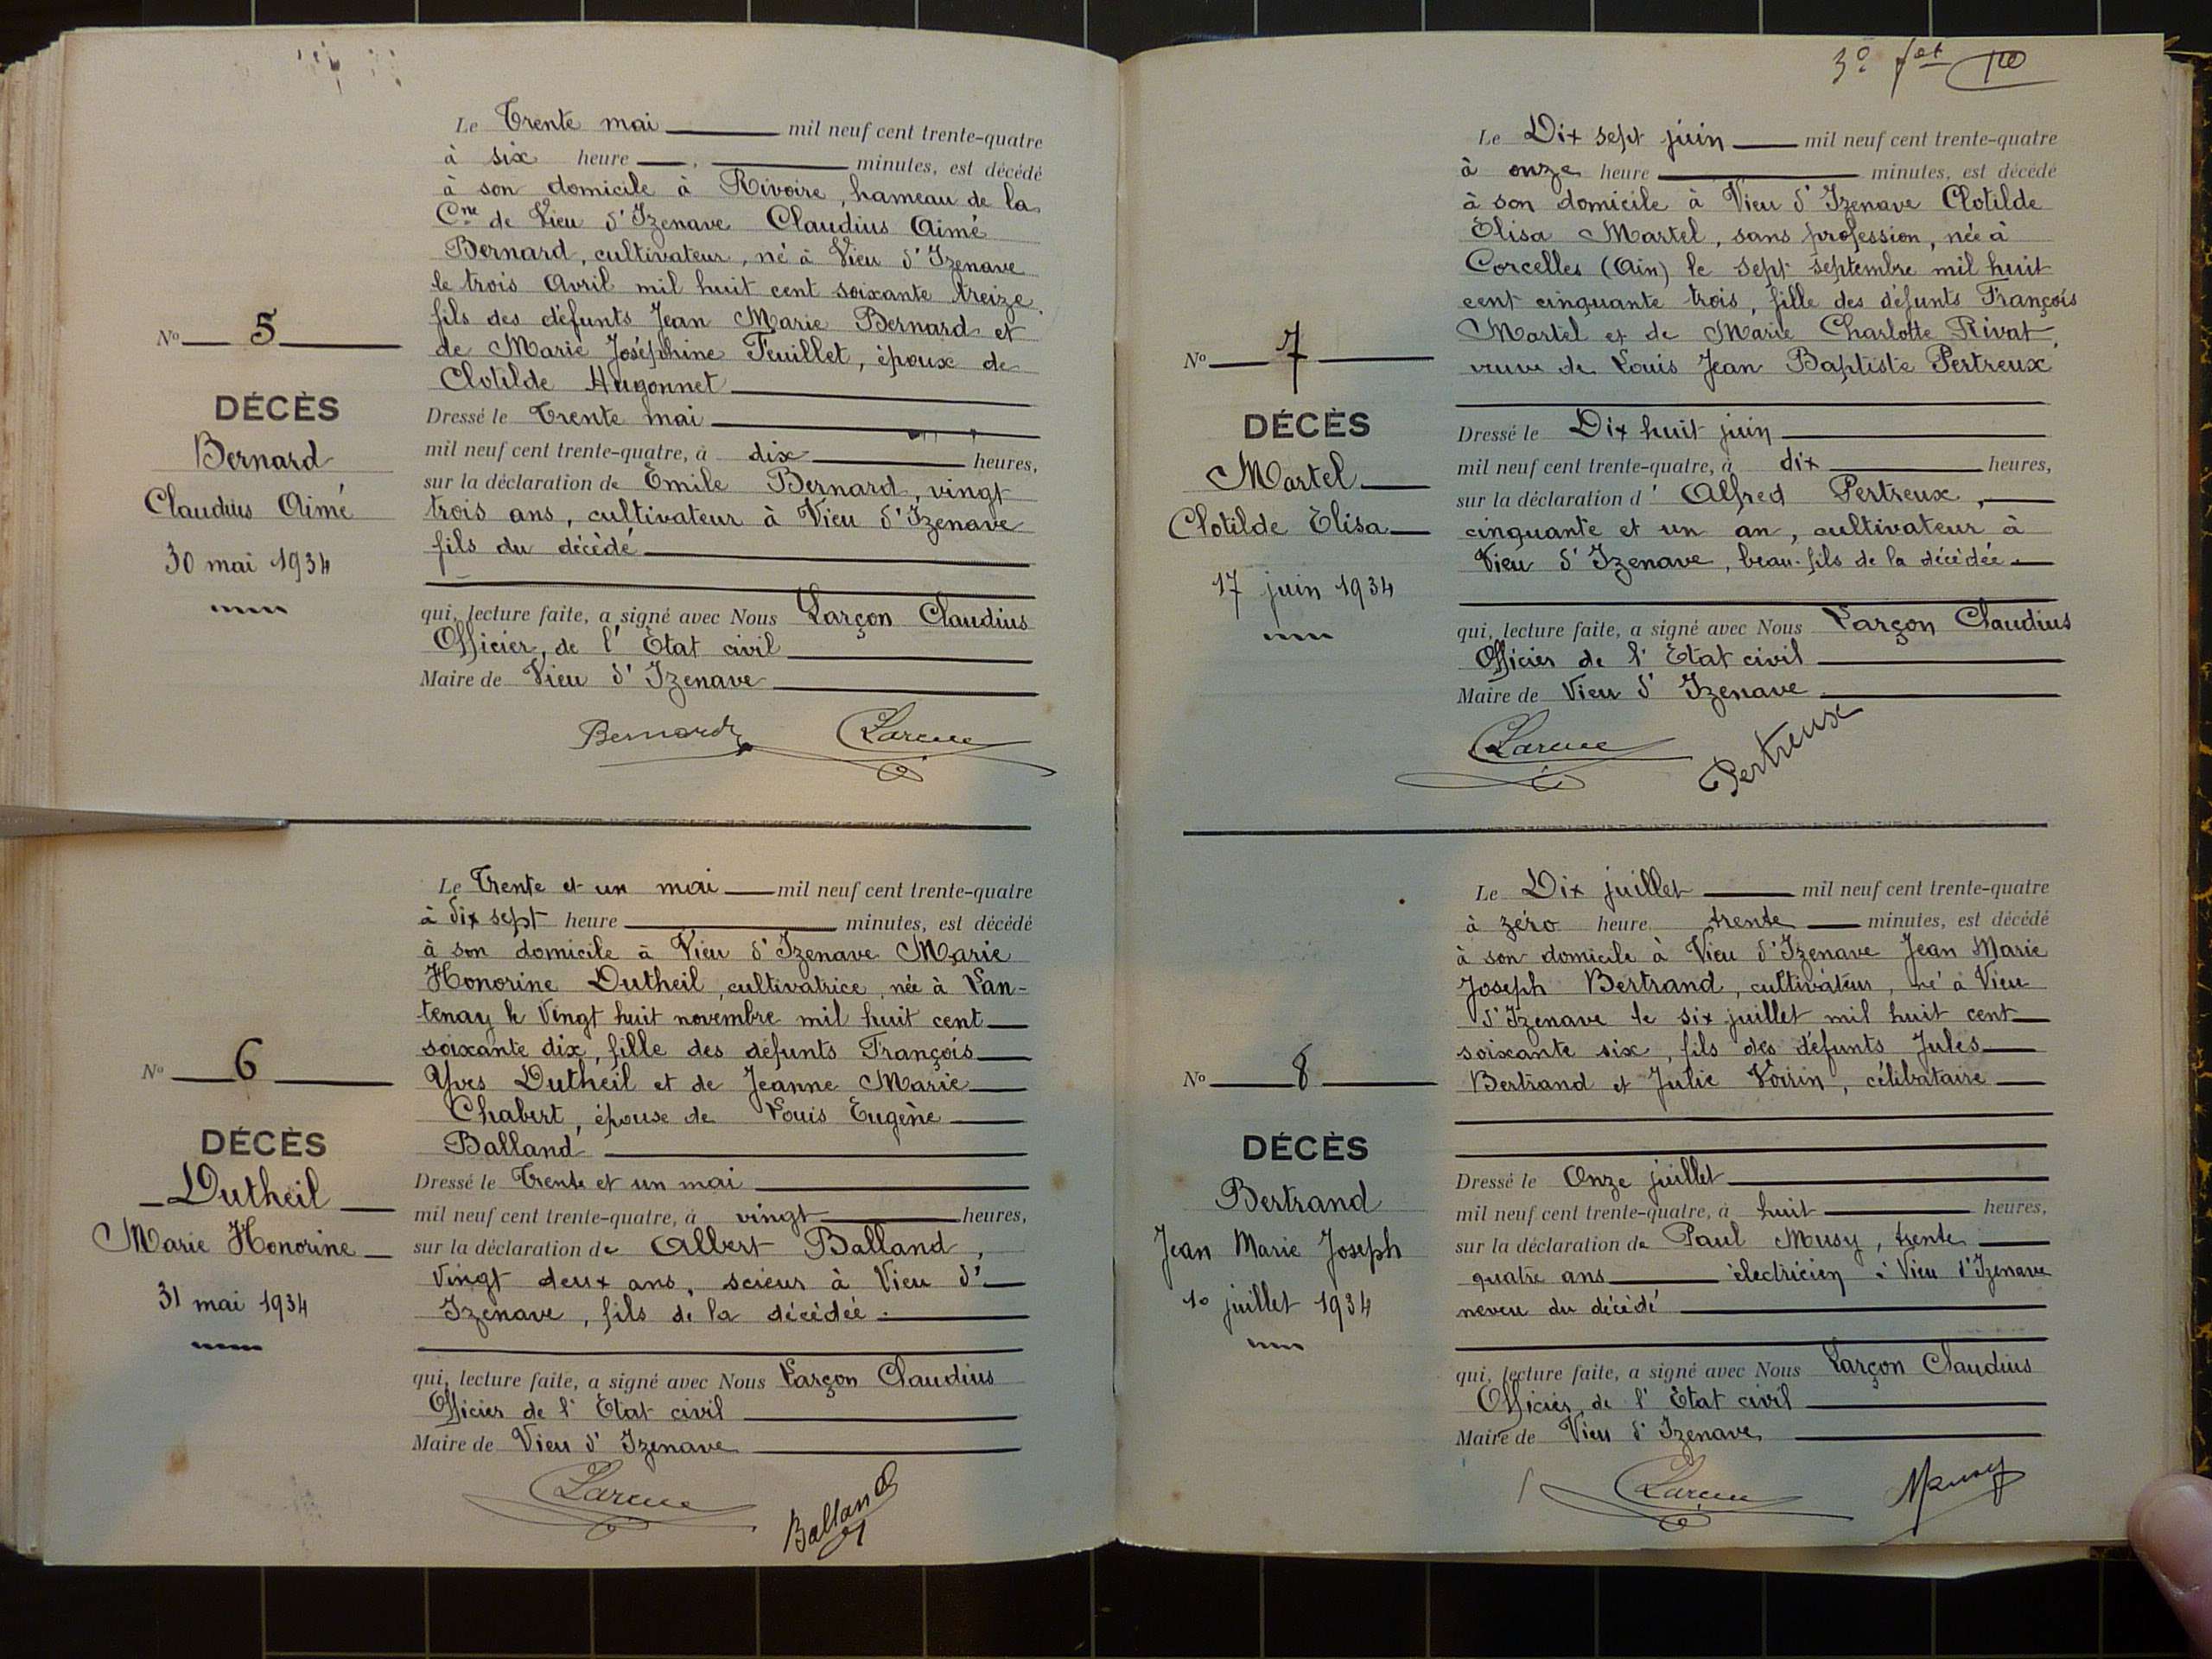 Le Trente mai mil neuf cent trente-quatre
à six heure , minutes, est décédé
à son domicile à Rivoire, hameau de la
Cne de Vieu d'Izenave Claudius Aimé
Bernard, cultivateur, né à Vieu d'Izenave
le trois Avril mil huit cent soixante treize
fils des défunts Jean Marie Bernard et
de Marie Joséphine Feuillet, époux de
Clotilde Hugonnet
No 5
DÉCÈS
Bernard
Claudius Aimé
30 mai 1934
Dressé le Trente mai
mil neuf cent trente-quatre, à dix heures,
sur la déclaration de Emile Bernard, vingt
trois ans, cultivateur à Vieu d'Izenave
fils du décédé
qui, lecture faite, a signé avec Nous Larçon Claudius
Officier, de l'Etat civil
Maire de Vieu d'Izenave
Bernard Larçon
Le Trente et un mai mil neuf cent trente-quatre
à dix sept heure minutes, est décédé
à son domicile à Vieu d'Izenave Marie
Honorine Dutheil, cultivatrice, née à Lan-
tenay le Vingt huit novembre mil huit cent
soixante dix, fille des défunts François
Yves Dutheil et de Jeanne Marie
Chabert, épouse de Louis Eugène
Balland
No 6
DÉCÈS
Dutheil
Marie Honorine
31 mai 1934
Dressé le Trente et un mai
mil neuf cent trente-quatre, à vingt heures,
sur la déclaration de Albert Balland,
Vingt deux ans, scieur à Vieu d'
Izenave, fils de la décédée.
qui, lecture faite, a signé avec Nous Larçon Claudius
Officier de l'Etat civil
Maire de Vieu d'Izenave
Larçon Balland
3e fet
Le Dix sept juin mil neuf cent trente-quatre
à onze heure minutes, est décédé
à son domicile à Vieu d'Izenave Clotilde
Elisa Martel, sans profession, née à
Corcelles (Ain) le sept septembre mil huit
cent cinquante trois, fille des défunts François
Martel et de Marie Charlotte Rivat,
veuve de Louis Jean Baptiste Pertreux
No 7
DÉCÈS
Martel
Clotilde Elisa
17 juin 1934
Dressé le Dix huit juin
mil neuf cent trente-quatre, à dix heures,
sur la déclaration d' Alfred Pertreux,
cinquante et un an, cultivateur à
Vieu d'Izenave, beau-fils de la décédée.
qui, lecture faite, a signé avec Nous Larçon Claudius
Officier de l'Etat civil
Maire de Vieu d'Izenave
Larçon Pertreux
Le Dix juillet mil neuf cent trente-quatre
à zéro heure trente minutes, est décédé
à son domicile à Vieu d'Izenave Jean Marie
Joseph Bertrand, cultivateur, né à Vieu
d'Izenave le six juillet mil huit cent
soixante six, fils des défunts Jules
Bertrand et Julie Voirin, célibataire
No 8
DÉCÈS
Bertrand
Jean Marie Joseph
10 juillet 1934
Dressé le Onze juillet
mil neuf cent trente-quatre, à huit heures,
sur la déclaration de Paul Musy, trente
quatre ans électricien à Vieu d'Izenave
neveu du décédé
qui, lecture faite, a signé avec Nous Larçon Claudius
Officier, de l'Etat civil
Maire de Vieu d'Izenave
Larçon Musy